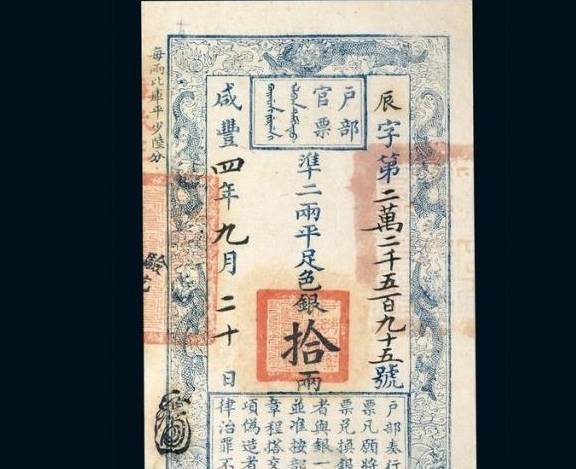 辰字第二萬二千五百九十五號
戶部
官票
準二兩平足色銀拾兩
咸豐四年九月二十日
戶部奏行
票凡願將
票兌換銀
者與銀一
並准按
章程搭交
項偽造者
律治罪不
每兩比庫平少陸分